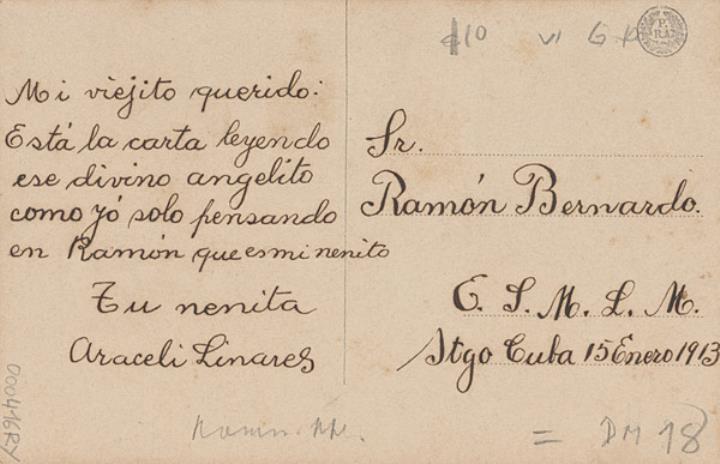 Mi viejito querido:
Está la carta leyendo
ese divino angelito
como yó solo pensando
en Ramón que es mi nenito
Tu nenita
Araceli Linares
Sr.
Ramón Bernardo.
E. S. M. L. M.
Stgo Cuba 15 Enero 1913
$10 VI G
P.
RA
= DM 18
000416RY